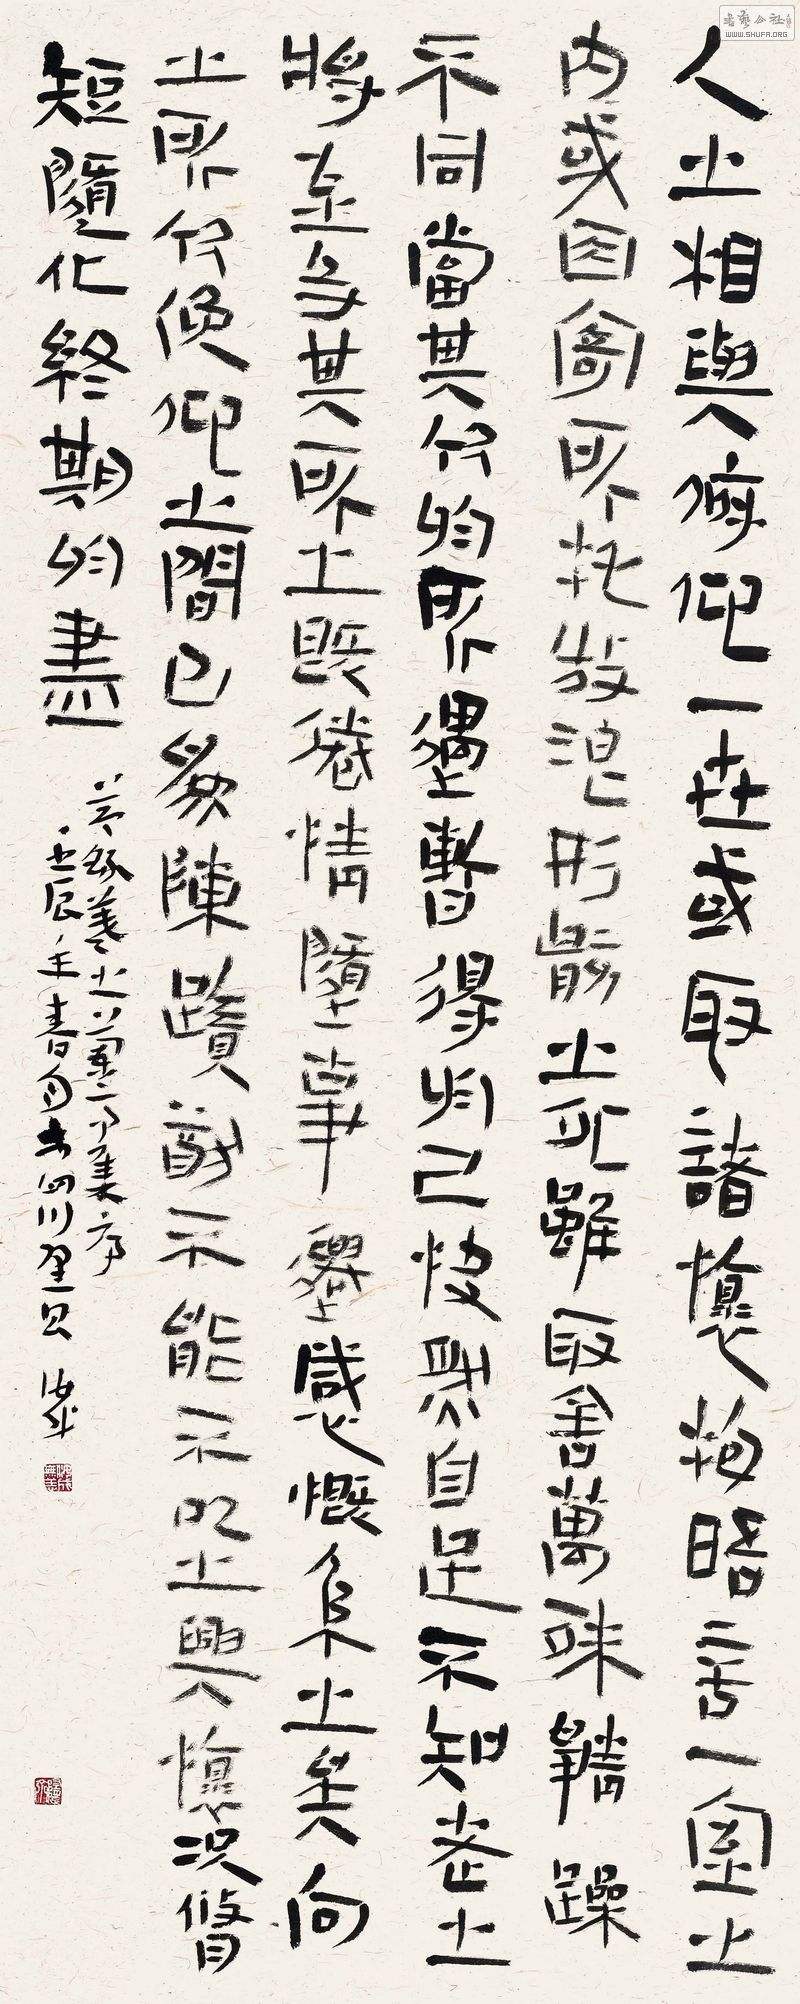 人之相與俯仰一世或取諸懷抱晤言一室之
內或因寄所托放浪形骸之外雖取舍萬殊靜躁
不同當其欣於所遇暫得於己快然自足不知老之
將至及其所之既倦情隨事遷感慨系之矣向
之所欣俛仰之間已為陳蹟猶不能不以之興懷況脩
短隨化終期於盡
羲之蘭亭集序
壬辰年春月四川
書藝公社
WWW.SHUFA.ORG